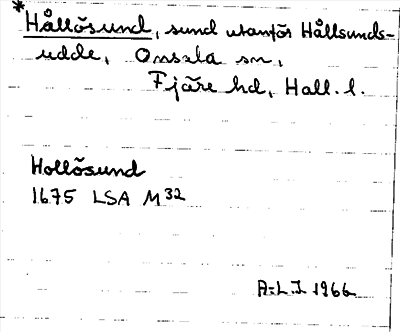 *Hållösund, sund utanför Hållsunds-
udde, Onsala sn,
Fjäre hd, Hall. l.
Hollösund
1675 LSA M 32
A-L.J. 1966